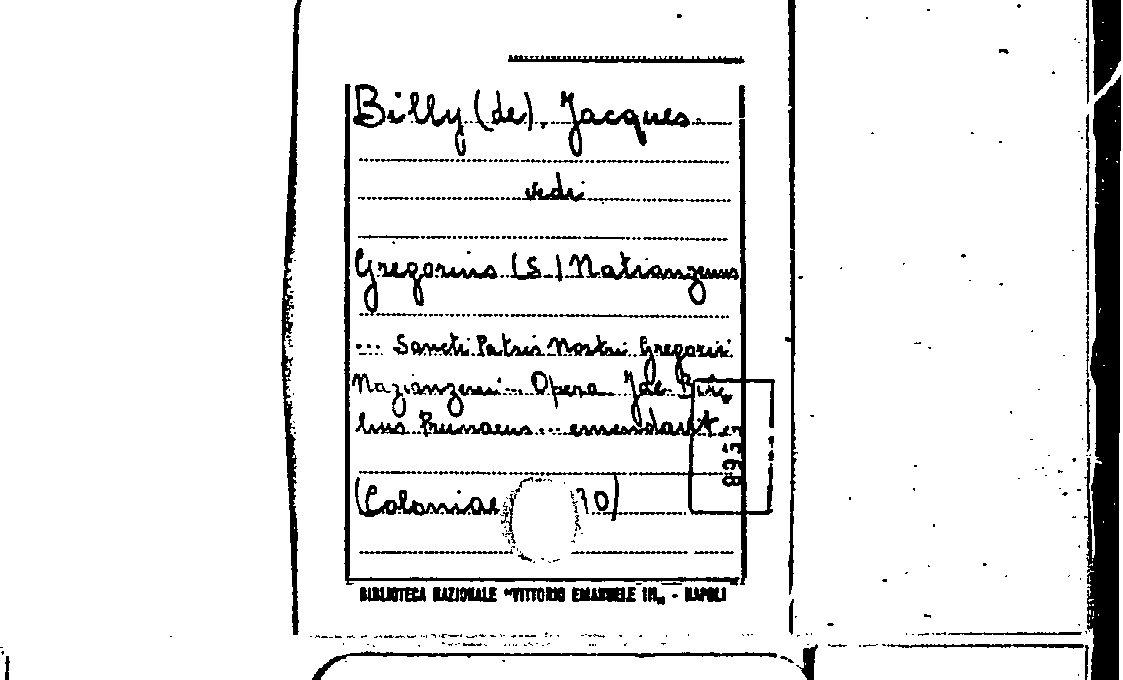 Billy (de), Jacques.
vedi
Gregorius (S.) Natianzenus
... Sancti Patris Nostri Gregorii
Nazianzeni... Opera. Jac. Bil-
lius Prunaeus... emendavit...
(Coloniae 90)
8957
BIBLIOTECA NAZIONALE "VITTORIO EMANUELE III„ - NAPOLI